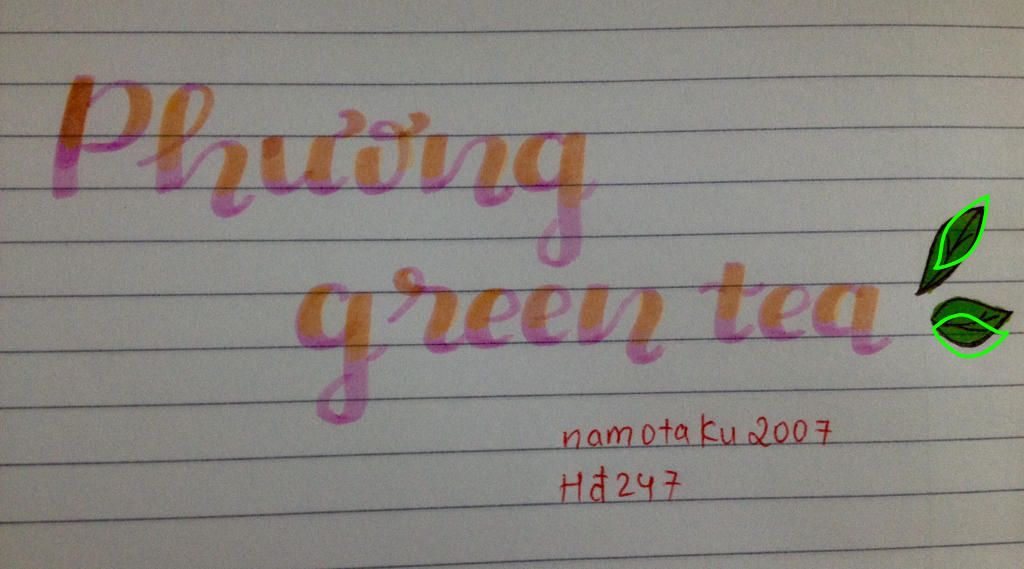 Phương
green tea
namotaku2007
Hđ247